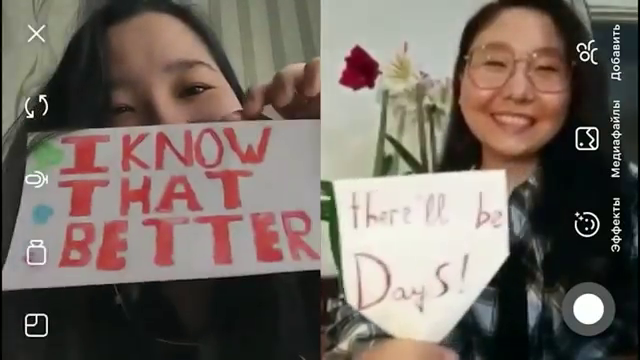 I KNOW
THAT
BETTER
there'll be
Days!
Добавить
Медиафайлы
Эффекты